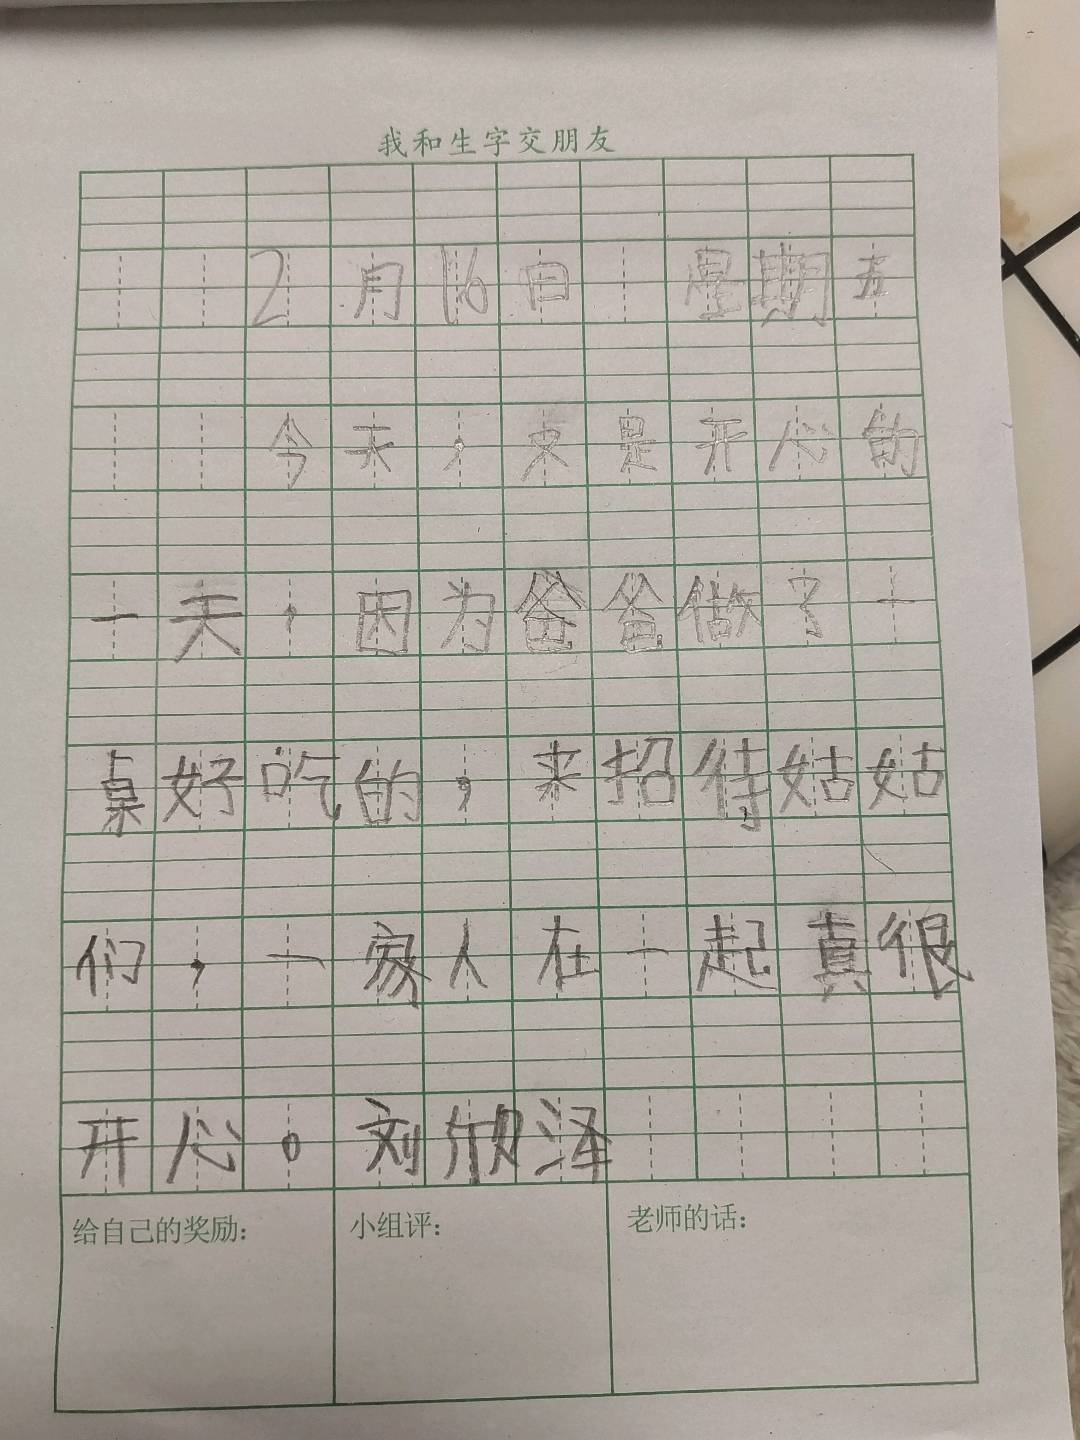 我和生字交朋友
2月16日 星期五
今天，又是开心的
一天，因为爸爸做了一
桌好吃的，来招待姑姑
们，一家人在一起真很
开心。刘欣泽
给自己的奖励：
小组评：
老师的话：